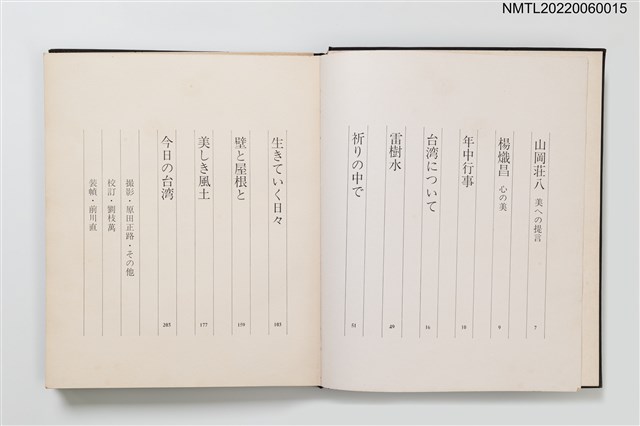 NMTL20220060015
山岡荘八 美への提言 7
楊熾昌 心の美 9
年中行事 10
台湾について 16
雷樹水 49
祈りの中で 51
生きていく日々 103
壁と屋根と 159
美しき風土 177
今日の台湾 205
撮影・原田正路・その他
校訂・劉枝萬
装幀・前川直